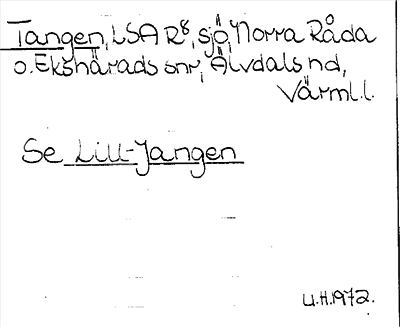 Tangen, LSA R⁸, sjö, Norra Råda
o. Ekshärads snr, Älvdals hd,
Värml.l.
Se Lill-Tangen
U.H.1972.